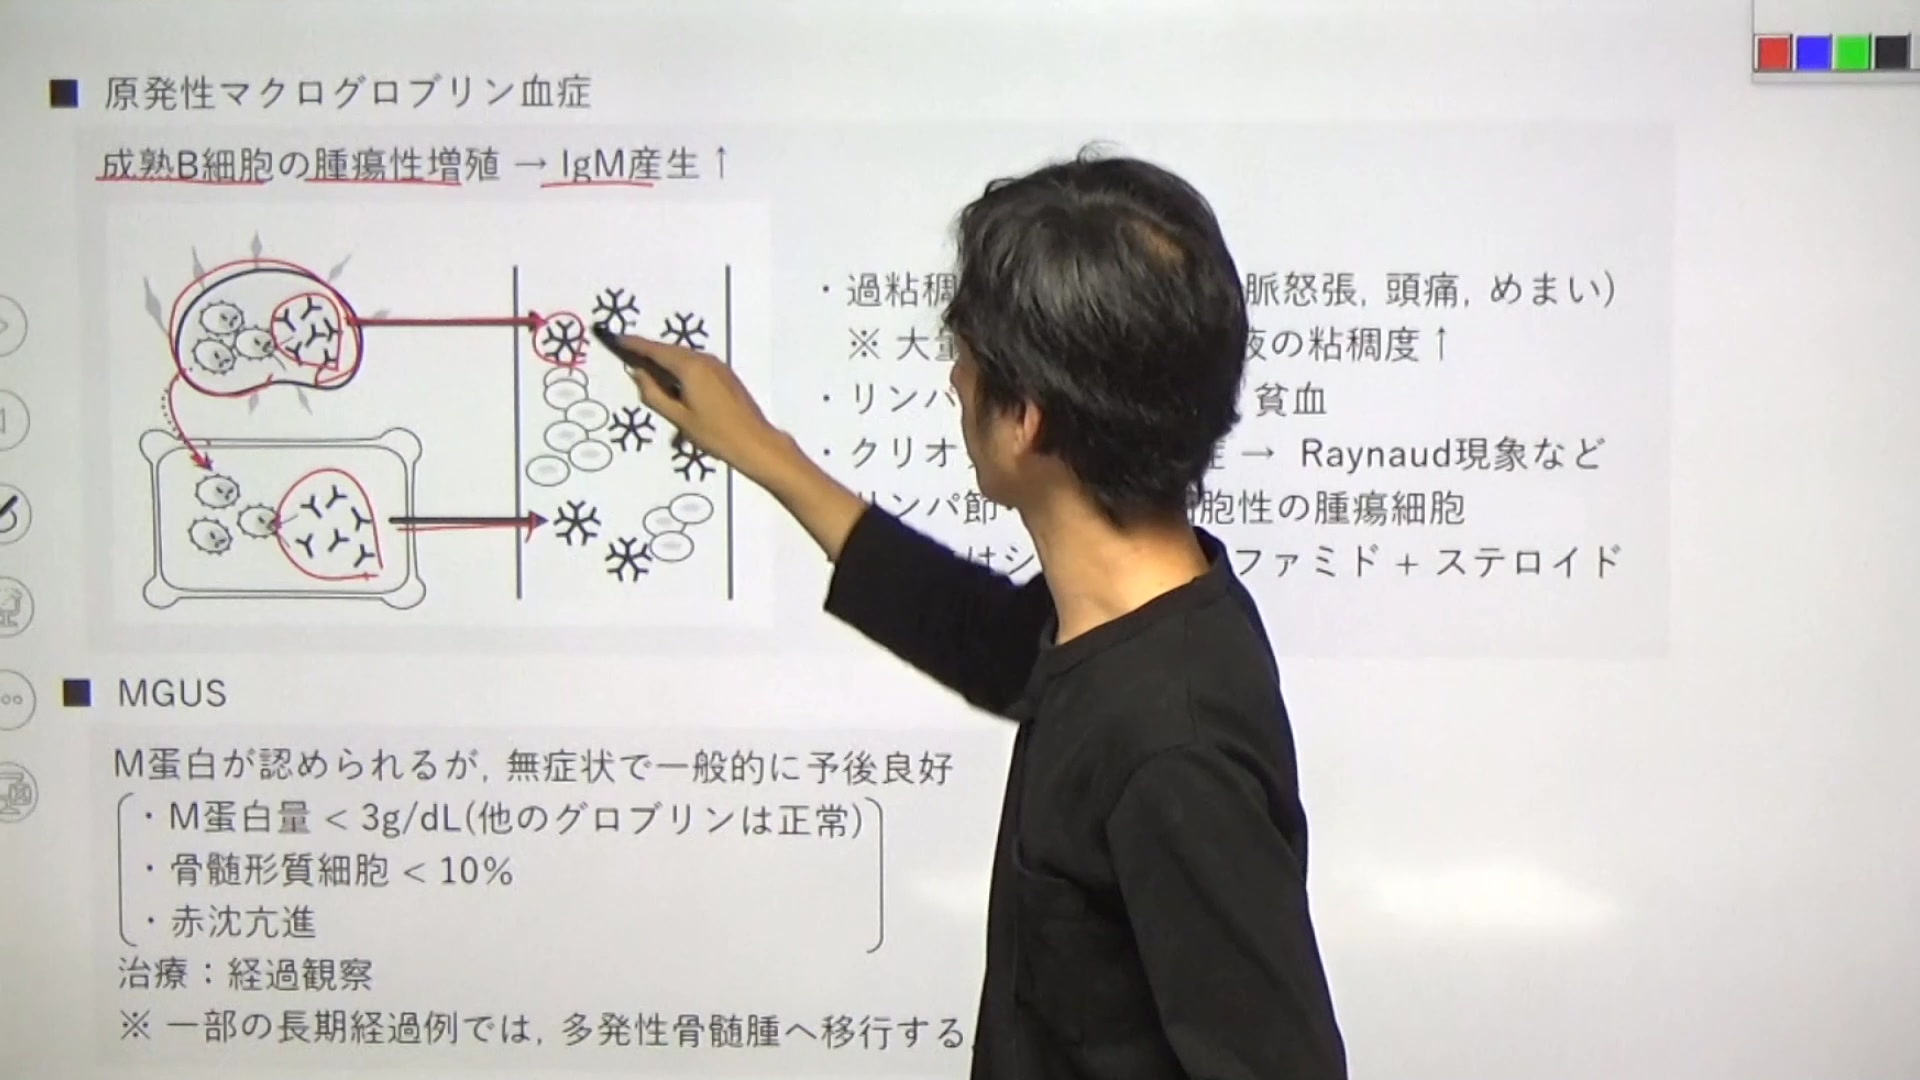 ■ 原発性マクログロブリン血症
成熟B細胞の腫瘍性増殖 → IgM産生↑
・過粘稠 脈怒張, 頭痛, めまい)
※ 大量 液の粘稠度↑
・リンパ 貧血
・クリオ 症 → Raynaud現象など
リンパ節 細胞性の腫瘍細胞
はシ ファミド + ステロイド
■ MGUS
M蛋白が認められるが, 無症状で一般的に予後良好
・M蛋白量 < 3g/dL(他のグロブリンは正常)
・骨髄形質細胞 < 10%
・赤沈亢進
治療：経過観察
※ 一部の長期経過例では, 多発性骨髄腫へ移行する